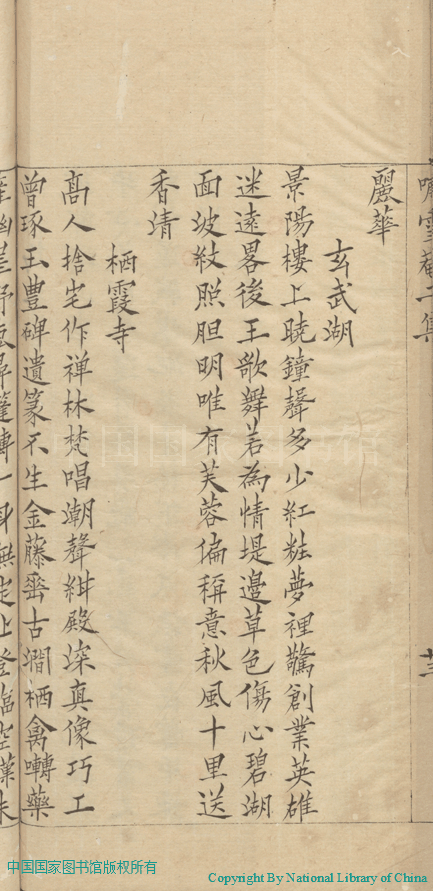 雪菴二集
麗華
玄武湖
景陽樓上曉鐘聲多少紅粧夢裡驚創業英雄
迷遠畧後王歌舞若為情堤邊草色傷心碧湖
面波紋照胆明唯有芙蓉偏稱意秋風十里送
香清
栖霞寺
髙人捨宅作禅林梵唱潮聲紺殿深真像巧工
曾琢玉豊碑遺篆不生金藤垂古澗栖禽囀藥
中国国家图书馆
中国国家图书馆版权所有
Copyright By National Library of China